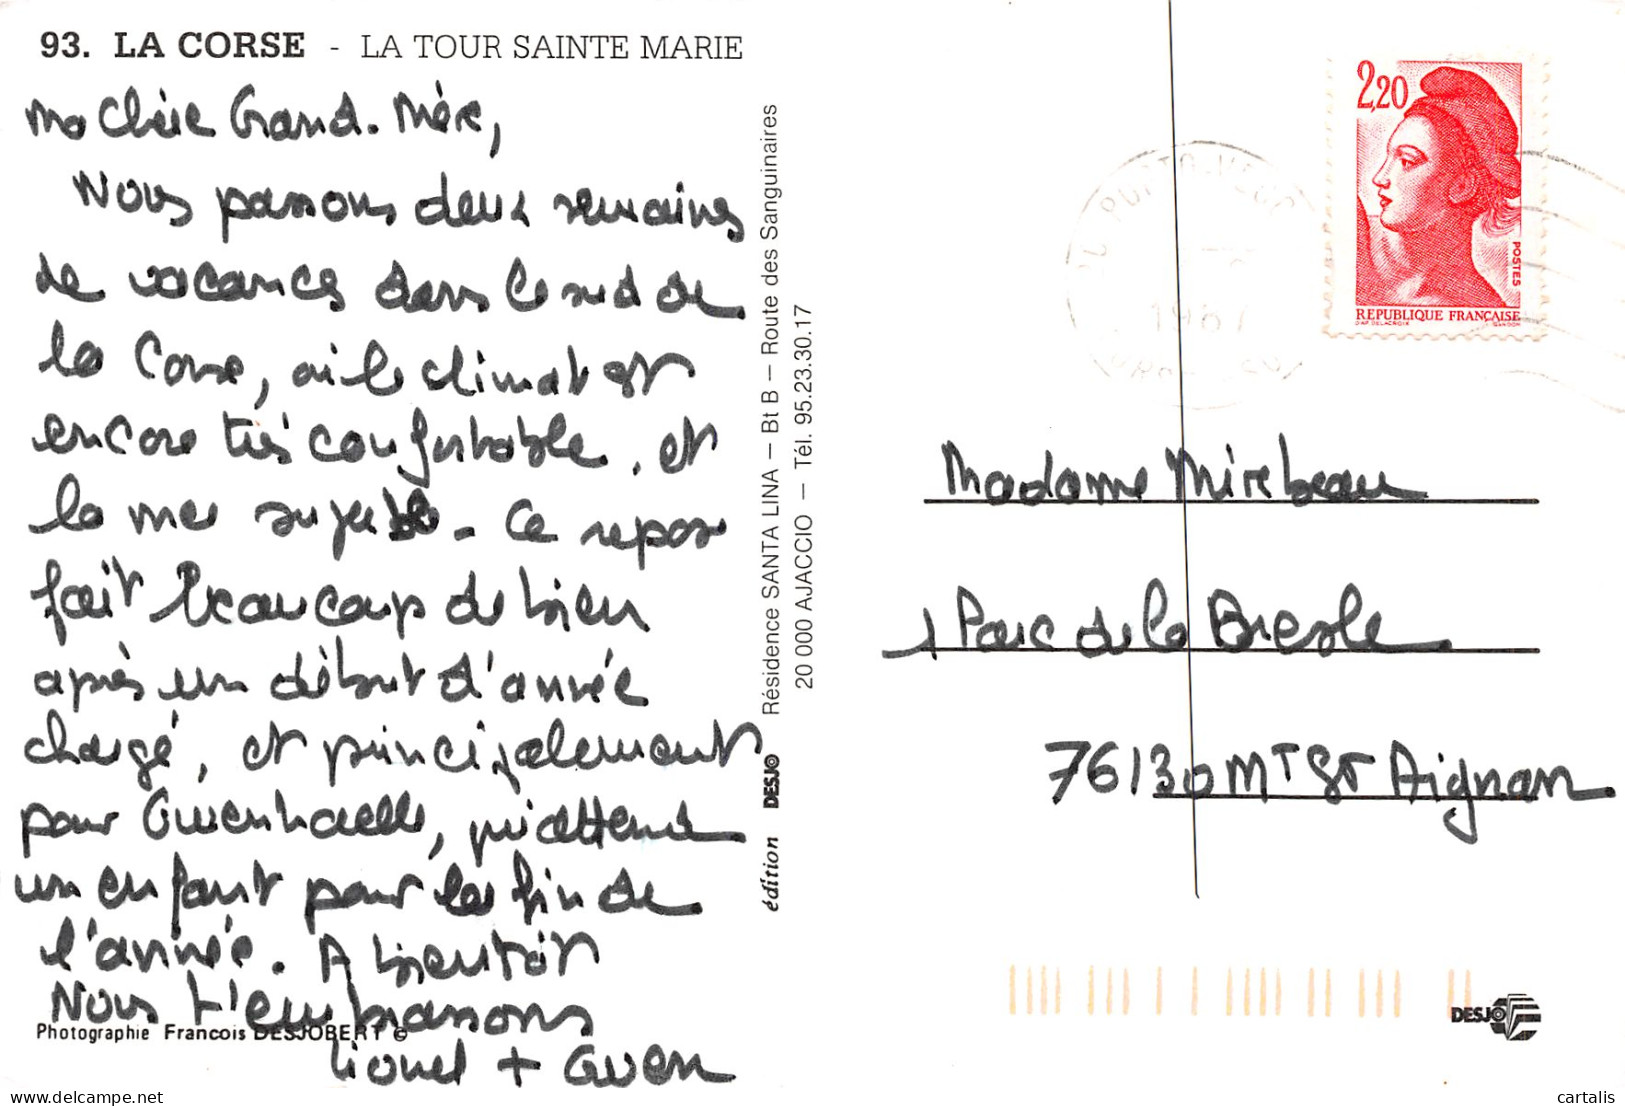 93. LA CORSE - LA TOUR SAINTE MARIE
Ma Chère Grand-Mère,
Nous passons deux semaines
de vacances dans le sud de
la Corse, où le climat est
encore très confortable, et
la mer superbe - Ce repos
fait beaucoup de bien
après un début d'année
chargé, et principalement
pour Gwenhaelle, qui attend
un enfant pour la fin de
l'année. A bientôt
Nous t'embrassons
Lionel + Gwen
Photographie Francois DESJOBERT ©
édition DESJO Résidence SANTA LINA – Bt B – Route des Sanguinaires
20 000 AJACCIO – Tél. 95.23.30.17
2,20
POSTES
REPUBLIQUE FRANÇAISE
D'AP. DELACROIX GANDON
Madame Mirebeau
1 Parc de la Bresle
76130 MT ST Aignan
DESJO
cartalis